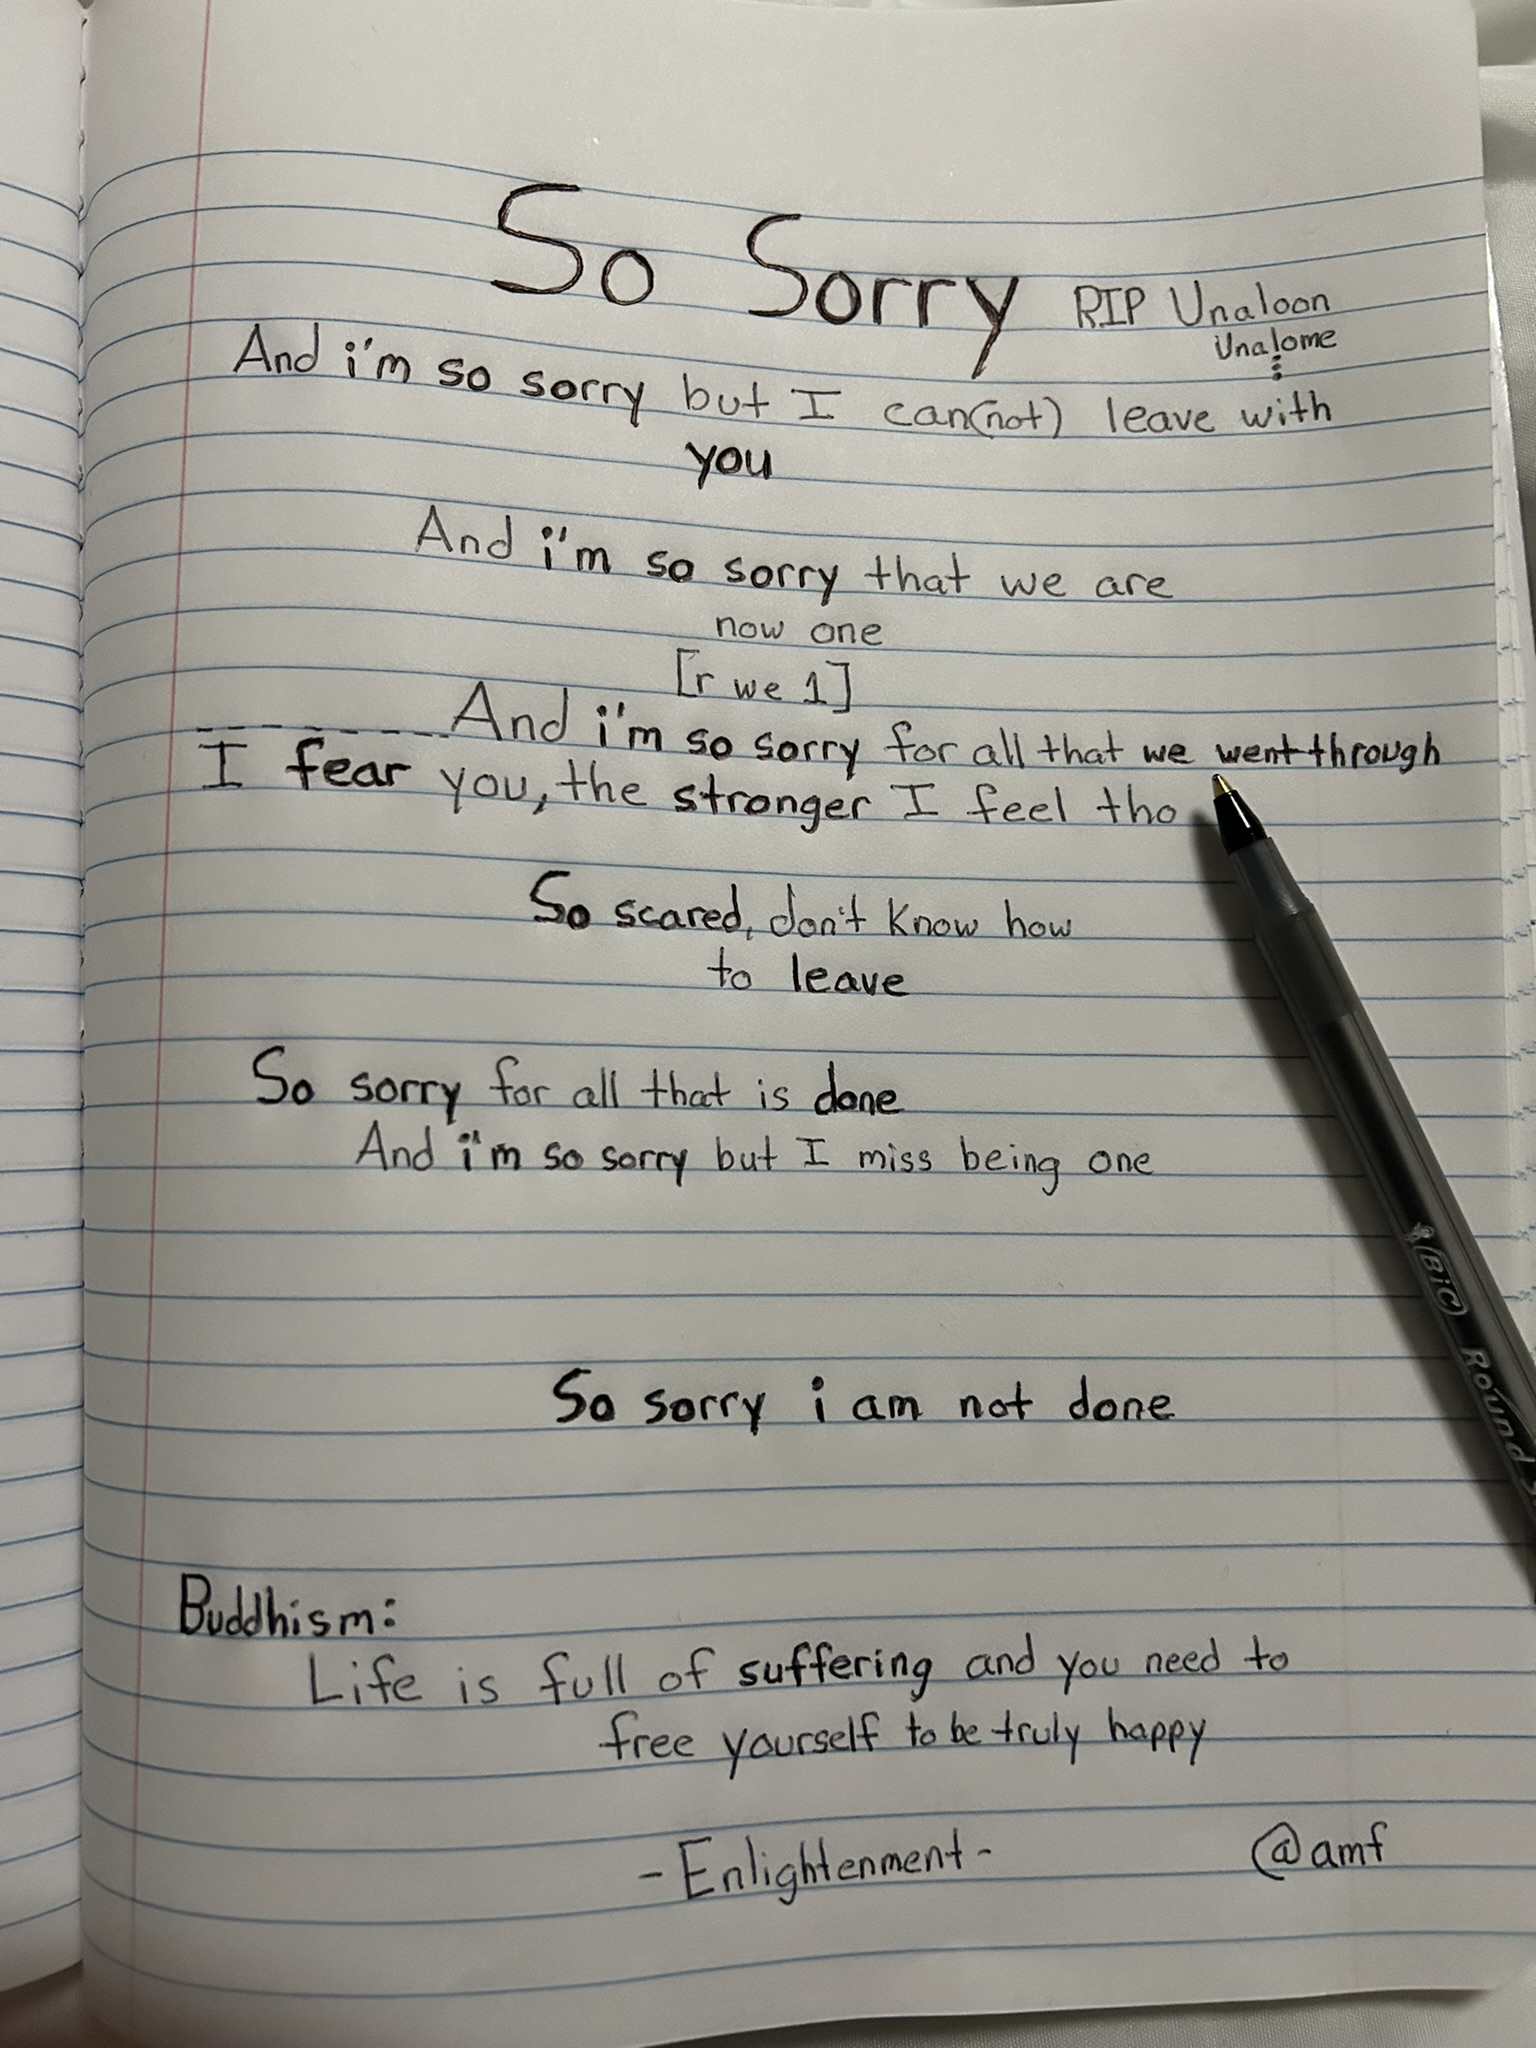 So Sorry RIP Unaloon
Unalome
And i'm so sorry but I can(not) leave with
you
And i'm so sorry that we are
now one
[r we 1]
And i'm so sorry for all that we went through
I fear you, the stronger I feel tho
So scared, don't know how
to leave
So sorry for all that is done
And i'm so sorry but I miss being one
So sorry i am not done
Buddhism:
Life is full of suffering and you need to
free yourself to be truly happy
- Enlightenment - @amf
BIC Round